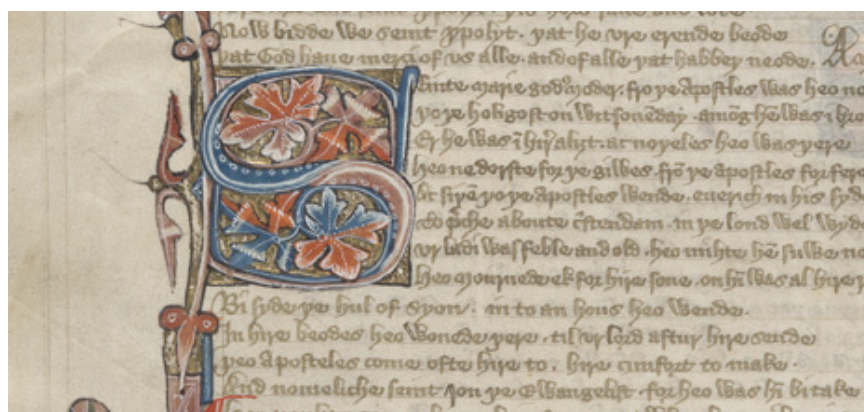 Now bidde we seint ypolyt . yat he vre erende beode
yat God haue merci of vs alle . and of alle yat habbeþ neode .
Seinte marie godꝰ moder . fro ye apostles was heo no
yo ye holi gost on witsoneday . amōg hē was i
Er he was
heo ne dorste for ye giwes . frō ye apostles for fere
yo ye apostles wende . euerich in his syd
aboute cristendam . in ye lond wel wyde
vr ladi was feble and old . heo mihte hē suwe no
Heo mournede ek for hire sone . on hī was al hire
Bi syde ye hul of Syon . in to an hous heo wende .
In hire beodes heo wonede yere . til vr lord aftur hire sende
yeo aposteles come ofte hire to . hire cumfort to make .
And nomeliche seint Jon ye Ewangelist . for heo was hī bitake